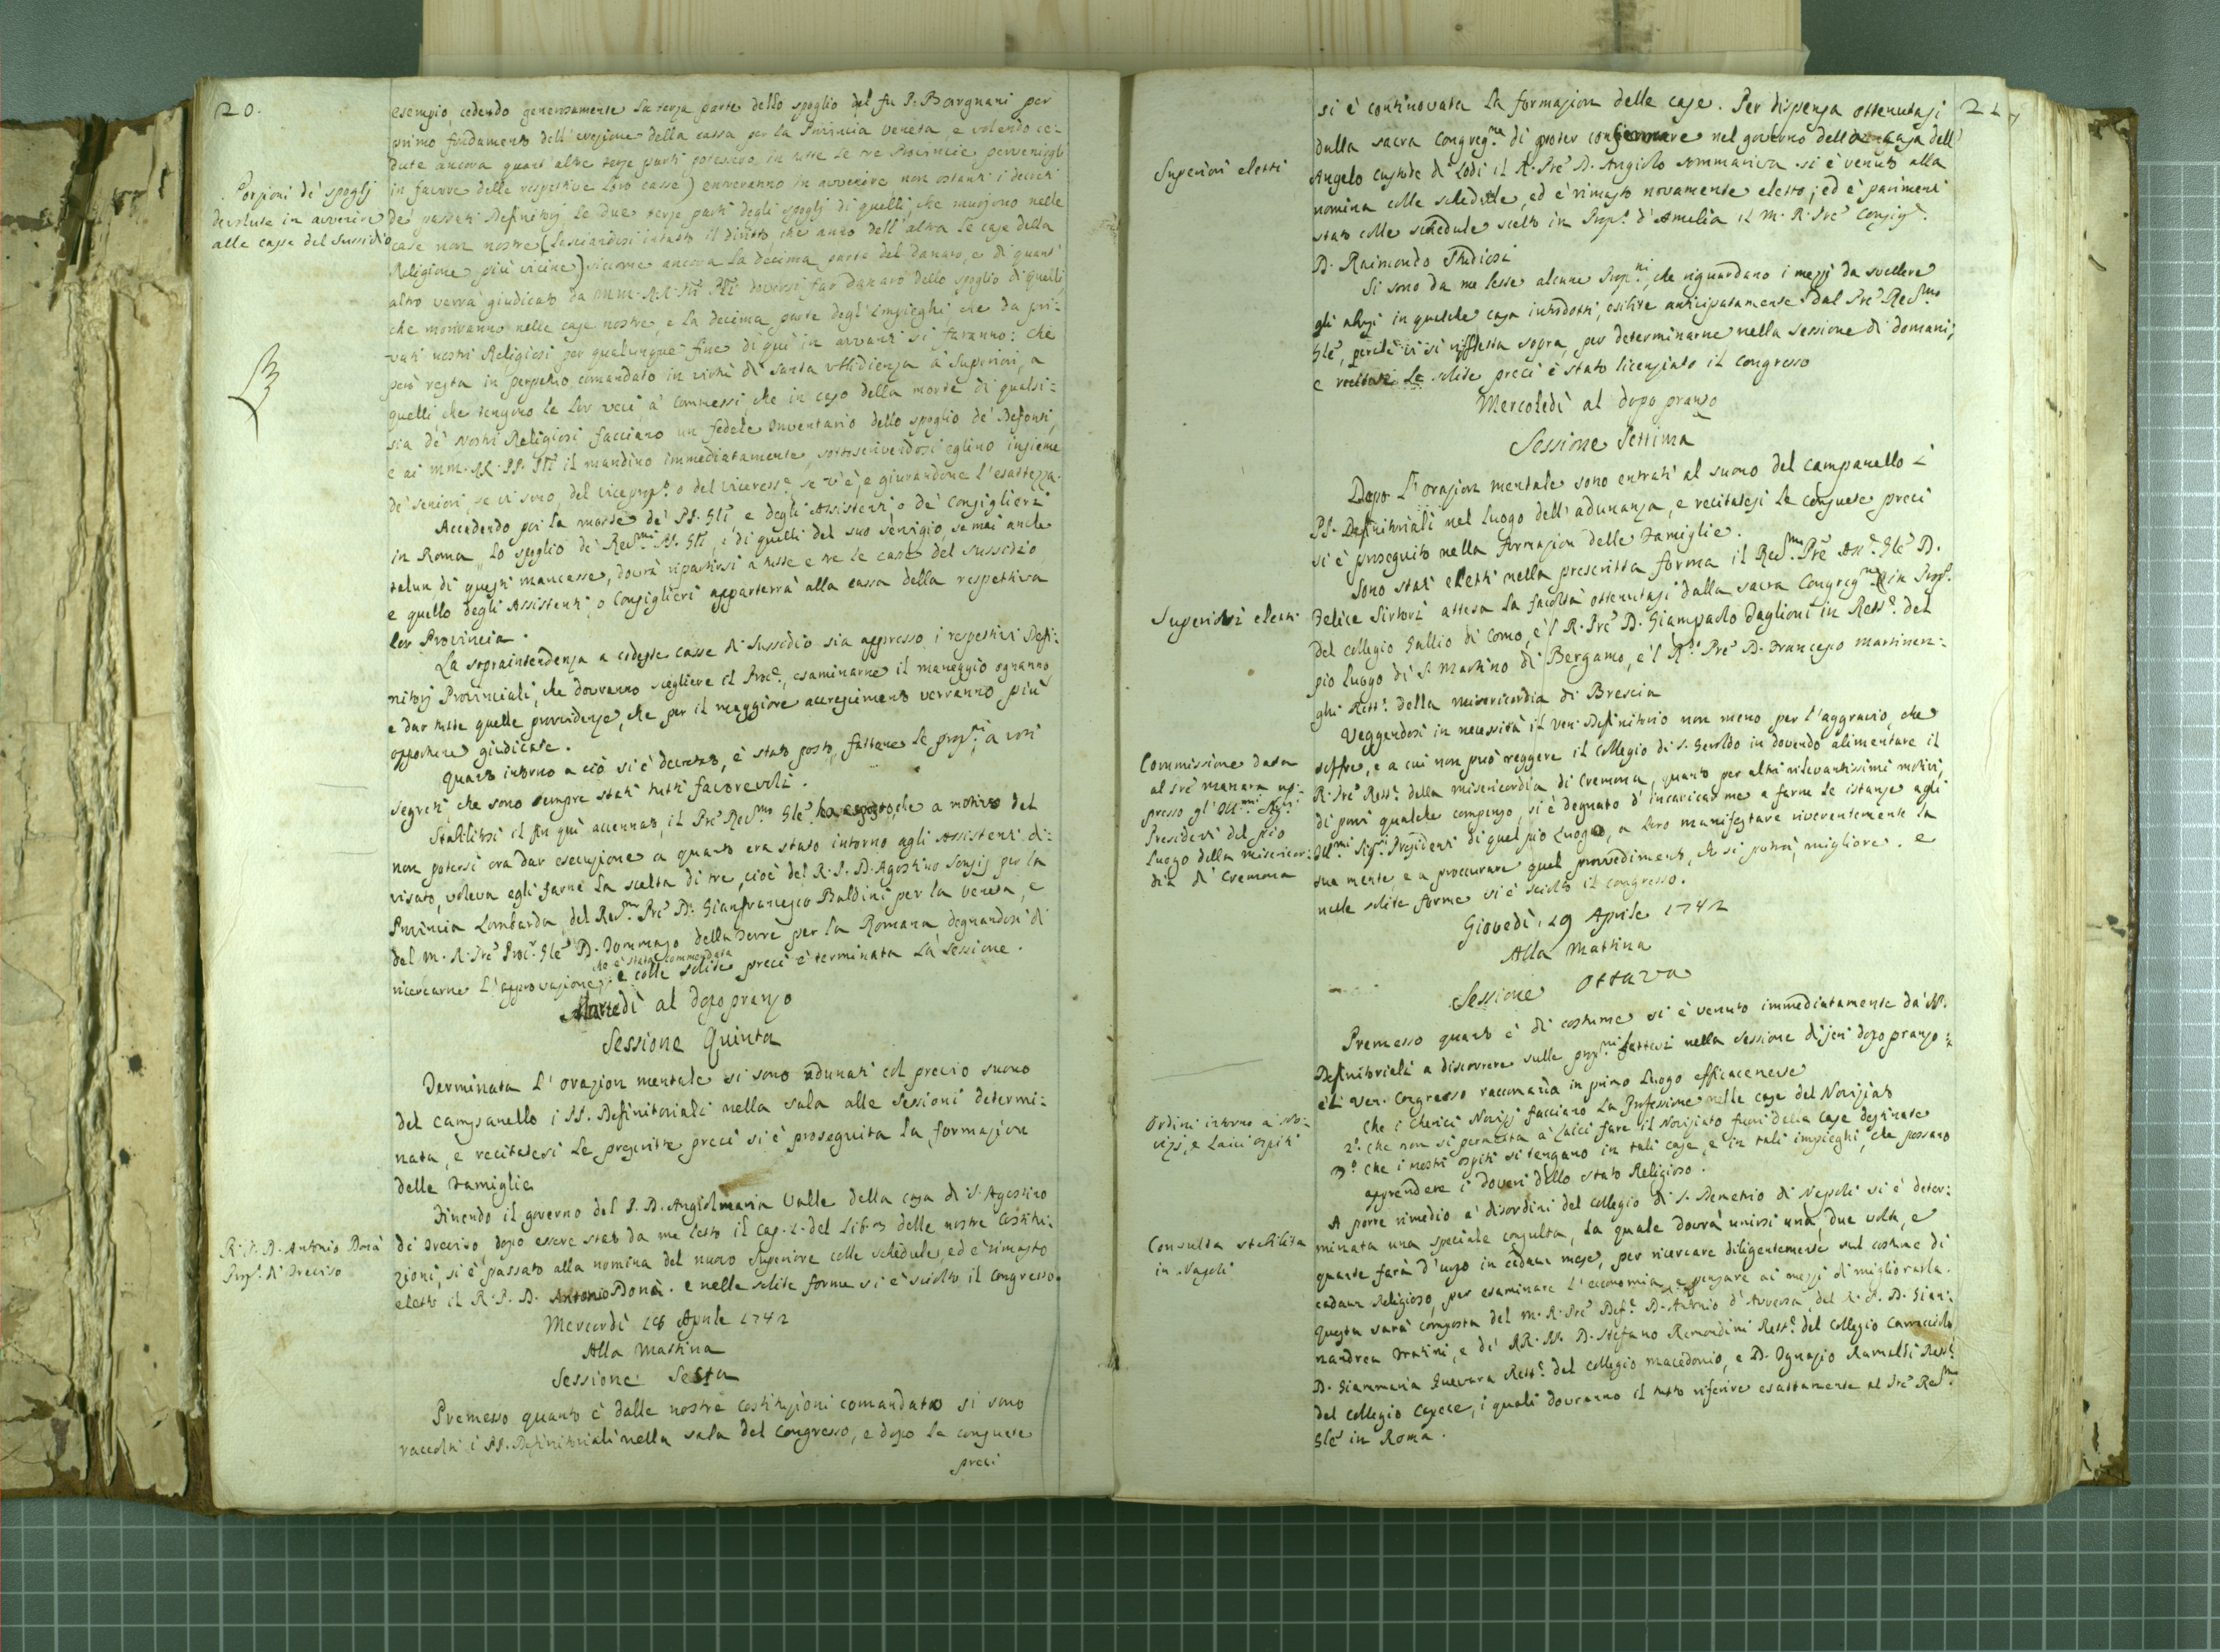 20.
esempio, cedendo generosamente la terza parte dello spoglio del fu P. Bargnani per
primo fondamento dell'erezione della cassa per la Provincia Veneta, e volendo ce-
dute ancora quant'altre terze parti potessero in tutte le tre Provincie pervenirgli
in favore delle respettive loro casse) entreranno in avvenire non ostanti i decreti
de' passati Definitorj le due terze parti degli spoglj di quelli, che muojono nelle
case non nostre (lasciandosi intatto il diritto, che anno dell'altra le case della
Religione più vicine) siccome ancora la decima parte del danaro, e di quant'
altro verrà giudicato da MM. RR. PP. doversi far danaro dello spoglio di quelli,
che moriranno nelle case nostre, e la decima parte degl'impieghi che da pri-
vati nostri Religiosi per qualunque fine di quì in avvanti si faranno: che
però resta in perpetuo comandato in virtù di santa ubbidienza a' Superiori, a
quelli, che tengono le lor veci, a' Commessi, che in caso della morte di qualsi-
sia de' Nostri Religiosi facciano un fedele Inventario dello spoglio de' Defonti,
e ai MM. RR. PP. il mandino immediatamente, sottoscrivendosi eglino insieme
de' seniori, se vi sono, del viceprep.o o del viceress.e se v'è, e giurandone l'esattezza.
Accadendo poi la morte de' PP. Gli, e degli Assistenti, o de' Consiglieri
in Roma, lo spoglio de' Re\mi PP. Gli, e di quelli del suo servigio, se mai anche
talun di questi mancasse, dovrà ripartirsi a tutte e tre le casse del sussidio,
e quello degli Assistenti, o Consiglieri apparterrà alla cassa della respettiva
lor Provincia.
La sopraintendenza a codeste casse di sussidio sia appresso i respettivi Defi-
nitorj Provinciali, che dovranno scegliere il Proc.e, esaminarne il maneggio ogn'anno
e dar tutte quelle provvidenze, che per il maggiore accrescimento verranno più
opportune giudicate.
Quanto intorno a ciò si è decretato, è stato posto, fattene le prop.ni, a voti
segreti, che sono sempre stati tutti favorevoli.
Stabilitosi il fin quì accennato, il Pre Re\mo Gle ha esposto, che a motivo del
non potersi ora dar esecuzione a quanto era stato intorno agli Assistenti di-
visato, voleva egli farne la scelta di tre, cioè del R. P. D. Agostino Songij per la
Provincia Lombarda, del Re\mo Pre D. Gianfrancesco Baldini per la Veneta, e
del M. R. Pre Proc.r Gle D. Tommaso della Torre per la Romana, degnandosi di
ricercarne l'approvazione, che è stata commendata e colle solite preci è terminata la sessione.
Martedì al dopo pranzo
Sessione Quinta
Terminata l'orazion mentale si sono adunati col previo suono
del campanello i PP. Definitoriali nella sala alle sessioni determi-
nata, e recitatesi le prescritte preci si è proseguita la formazion
delle famiglie
Finendo il governo del P. D. Angiolmaria Valle della casa di S. Agostino
di Treviso, dopo essere stato da me letto il cap. 2. del lib. 3 delle nostre costitu-
zioni, si è passato alla nomina del nuovo superiore colle schedule, ed è rimasto
eletto il R. P. D. Antonio Donà. e nelle solite forme si è sciolto il congresso.
Mercordì 18 Aprile 1742
Alla Mattina
Sessione Sesta
Premesso quanto è dalle nostre costituzioni comandato si sono
raccolti i PP. Definitoriali nella sala del congresso, e dopo le consuete
preci
Porzioni de' spoglj
devolute in avvenire
alle casse del sussidio
R. P. D. Antonio Donà
Prep.o di Treviso
21
si è continovata la formazion delle case. Per dispensa ottenutasi
dalla sacra Congreg.ne di poter confermare nel governo della casa dell'
Angelo custode di Lodi il R. Pre D. Angiolo Sommariva si è venuto alla
nomina colle schedule, ed è rimasto novamente eletto; ed è parimenti
stato colle schedule scelto in Prep.o d'Amelia il M. R. Pre Consig.re
D. Raimondo Studiosi
Si sono da me lette alcune Prop.ni, che riguardano i mezzi da svellere
gli abusi in qualche casa introdotti, esibite anticipatamente dal Pre Re\mo
Gle, perchè vi si rifletta sopra, per determinarne nella sessione di domani;
e recitatesi le solite preci è stato licenziato il congresso
Mercoledì al dopo pranzo
Sessione Settima
Dopo l'orazion mentale sono entrati al suono del campanello i
PP. Definitoriali nel luogo dell'adunanza, e recitatesi le consuete preci
si è proseguito nella formazion delle famiglie.
Sono stati eletti nella prescritta forma il Re\mo Pre Ass.e Gle D.
Felice Sirtori attesa la facoltà ottenutasi dalla sacra Congreg.ne in Prep.o
del collegio Gallio di Como, e'l R. Pre D. Giampaolo Baglioni in Rett.e del
pio luogo di S. Martino di Bergamo, e'l R. Pre D. Francesco Martinen-
ghi Rett.e della Misericordia di Brescia
Veggendosi in necessità il Ven. Definitorio non meno per l'aggravio, che
soffre, e a cui non può reggere il collegio di S. Geroldo in dovendo alimentare il
R. Pre Rett.e della Misericordia di Cremona, quanto per altri rilevantissimi motivi,
di porvi qualche compenso, si è degnato d'incaricarme a farne le istanze agli
Ill.mi Sig.ri Presidenti di quel pio luogo, a loro manifestare riverentemente la
sua mente, e a proccurare quel provvedimento, che si potrà, migliore. e
nelle solite forme si è sciolto il congresso.
Giovedì, 19 Aprile 1742
Alla Mattina
Sessione Ottava
Premesso quanto è di costume si è venuto immediatamente da' PP.
Definitoriali a discorrere sulle prop.ni fattesi nella sessione di jeri dopo pranzo:
e il Ven. Congresso raccomanda in primo luogo efficacemente
Che i Cherici Novizj facciano la Professione nelle case del Noviziato
2.o Che non si permetta a' Laici fare il Noviziato fuori delle case destinate
3.o Che i nostri Ospiti si tengano in tali case, e in tali impieghi, che possano
apprendere i doveri dello stato Religioso.
A porre rimedio a' disordini del collegio di S. Demetrio di Napoli si è deter-
minata una speciale consulta, la quale dovrà unirsi una, due volte, e
quante farà d'uopo in cadaun mese, per ricercare diligentemente sul costume di
cadaun Religioso, per esaminare l'economia, e pensare ai mezzi di migliorarla.
Questa sarà composta del M. R. Pre Def.e D. Antonio d'Aversa, del R. P. D. Gian-
nandrea Tratini, e de' RR. PP. D. Stefano Remondini Rett.e del collegio Caracciolo,
D. Giammaria Guevara Rett.e del collegio Macedonio, e D. Ignazio Ramaldi Rett.e
del collegio Capece, i quali dovranno il tutto riferire esattamente al Pre Re\mo
Gle in Roma.
Superiori eletti
Superiori eletti
Commissione data
al Pre Manara ap-
presso gl'Ill.mi Sig.ri
Presidenti del pio
luogo della Misericor-
dia di Cremona
Ordini intorno a' No-
vizj, e Laici ospiti
Consulta stabilita
in Napoli